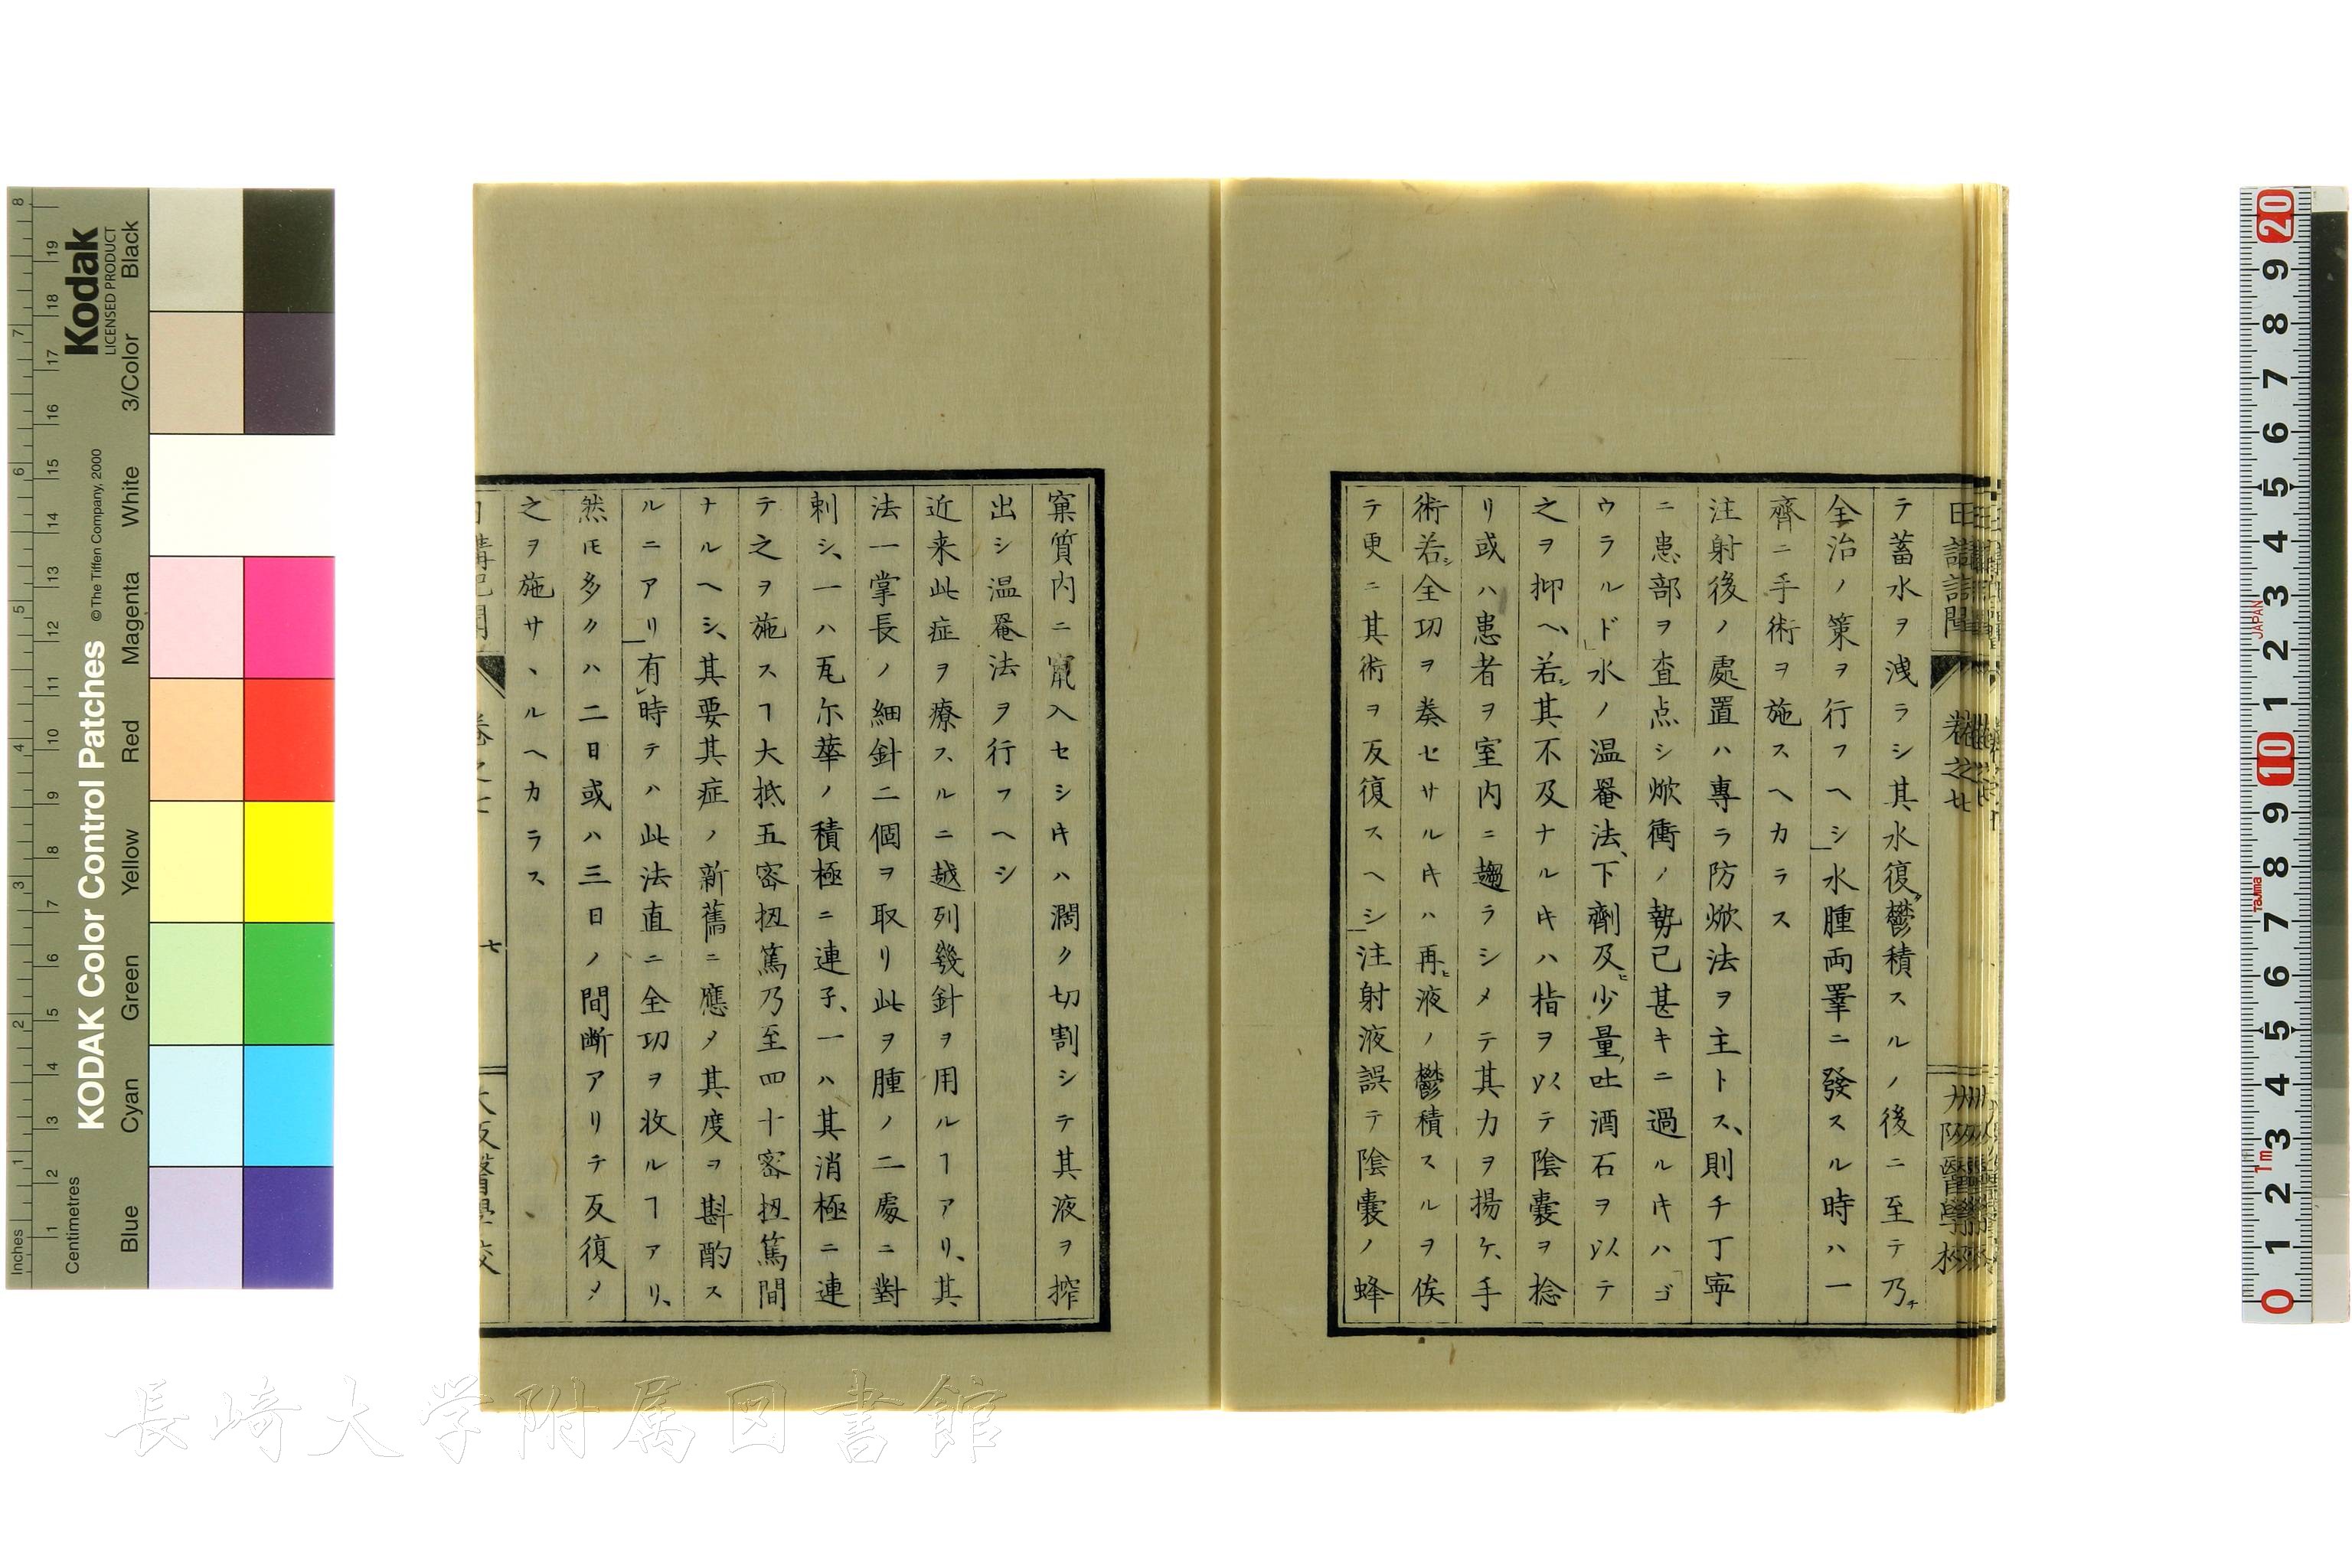 テ蓄水ヲ洩ラシ其水復タ鬱積スルノ後ニ至テ乃チ
全治ノ策ヲ行フヘシ」水腫両睪ニ發スル時ハ一
齊ニ手術ヲ施スヘカラス
注射後ノ處置ハ專ラ防焮法ヲ主トス、則チ丁寧
ニ患部ヲ査点シ焮衝ノ勢已甚キニ過ルキハ「ゴ
ウラルド」水ノ温罨法、下劑及ヒ少量吐酒石ヲ以テ
之ヲ抑ヘ、若シ其不及ナルキハ指ヲ以テ陰囊ヲ捻
リ或ハ患者ヲ室内ニ趨ラシメテ其力ヲ揚ケ、手
術若シ全功ヲ奏セサルキハ再ヒ液ノ鬱積スルヲ俟
テ更ニ其術ヲ反復スヘシ」注射液誤テ陰囊ノ蜂
窠質内ニ竄入セシキハ濶ク切割シテ其液ヲ搾
出シ温罨法ヲ行フヘシ
近来此症ヲ療スルニ越列幾針ヲ用ルヿアリ、其
法一掌長ノ細針二個ヲ取リ此ヲ腫ノ二處ニ對
刺シ、一ハ瓦尓華ノ積極ニ連子、一ハ其消極ニ連
テ之ヲ施スヿ大抵五密扭篤乃至四十密扭篤間
ナルヘシ、其要其症ノ新舊ニ應メ其度ヲ斟酌ス
ルニアリ」有時テハ此法直ニ全功ヲ收ルヿアリ、
然𪜈多クハ二日或ハ三日ノ間断アリテ反復メ
之ヲ施サヽルヘカラス
七
長崎大学附属図書館
Kodak
LICENSED PRODUCT
KODAK Color Control Patches
©The Tiffen Company, 2000
Inches
Centimetres
Blue
Cyan
Green
Yellow
Red
Magenta
White
3/Color
Black
JAPAN
Tajima
1m